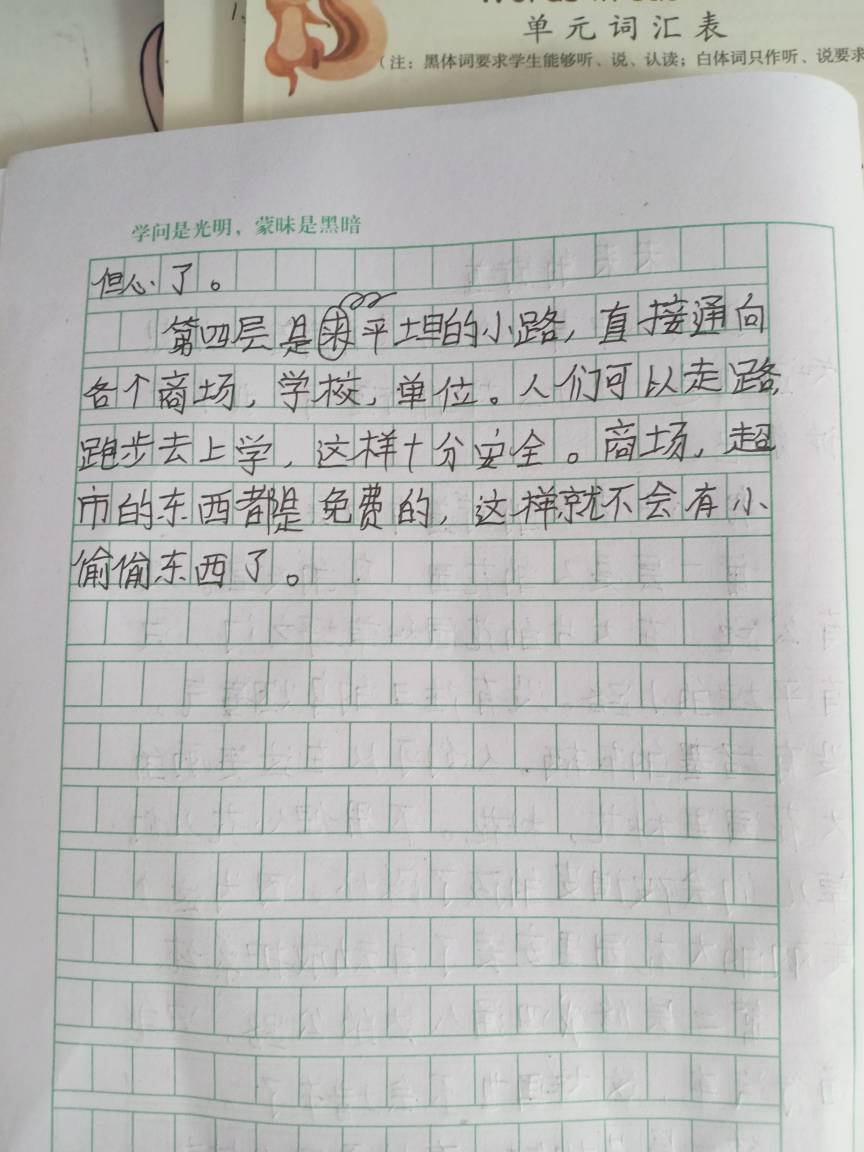 单元词汇表
(注：黑体词要求学生能够听、说、认读；白体词只作听、说要求
学问是光明，蒙昧是黑暗
但心了。
第四层是平坦的小路，直接通向
各个商场，学校，单位。人们可以走路，
跑步去上学，这样十分安全。商场，超
市的东西都是免费的，这样就不会有小
偷偷东西了。